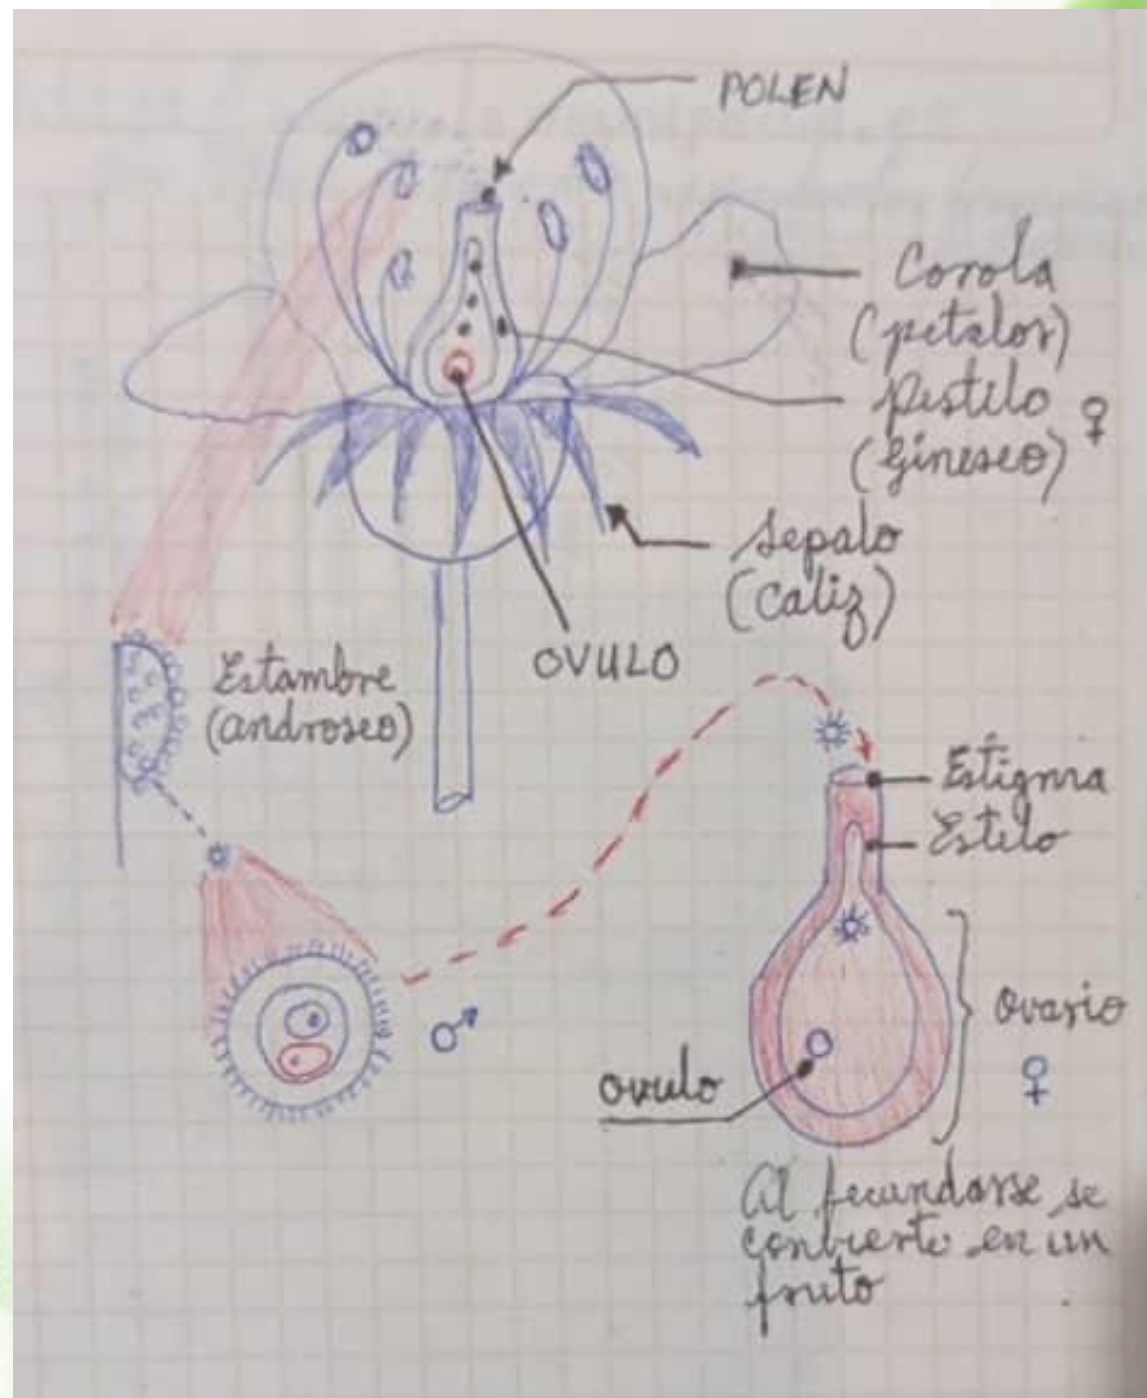 POLEN
Corola
(petalos)
Pistilo ♀
(gineseo)
Sepalo
(Caliz)
OVULO
Estambre
(androseo)
Estigma
Estilo
Ovario
♀
♂
ovulo
Al fecundarse se
conbierte en un
fruto